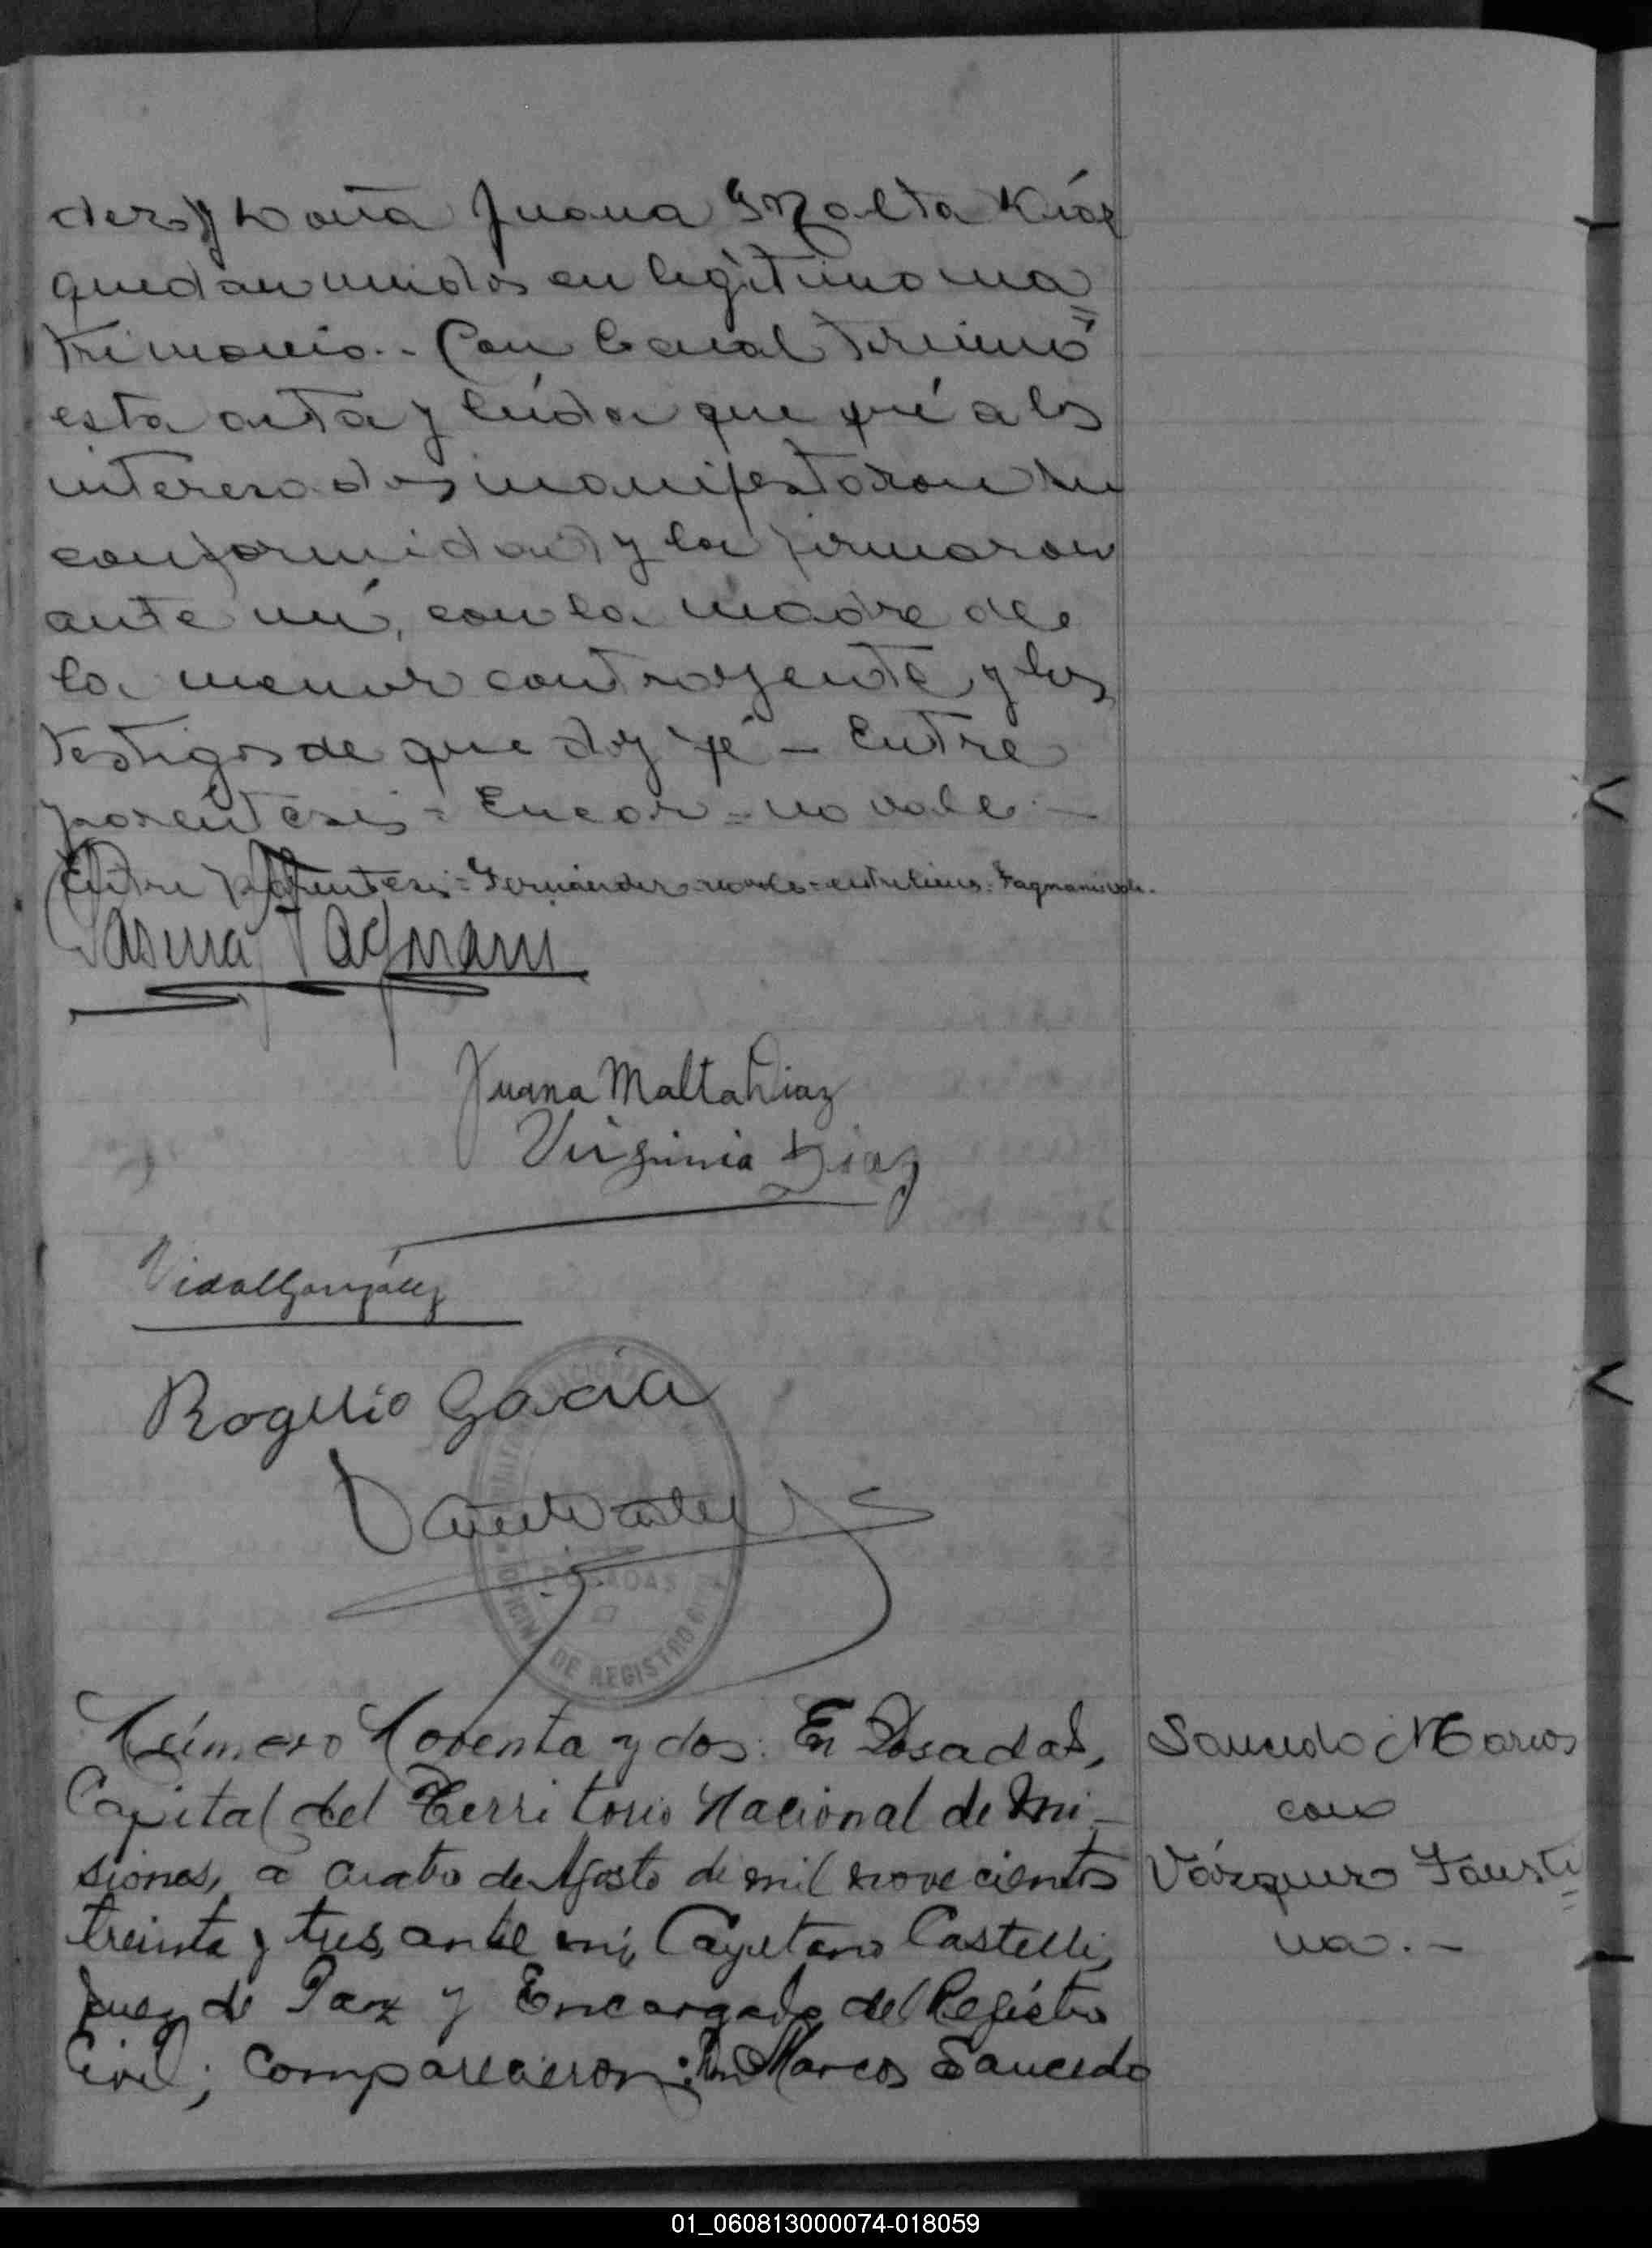 der y Doña Juana Malta Díaz
quedan unidos en legítimo ma=
trimonio.- Con lo cual terminó
esta acta y leída que fué a los
interesados manifestaron su
conformidad y la firmaron
ante mí, con la madre de
la menor contrayente y los
testigos de que doy fé - Entre
paréntesis = Encar = no vale. -
Entre paréntesis = Fernández no vale = entrelíneas = Fagnani vale.
Fagnani
Juana Malta Diaz
Virginia Diaz
Vidal González
Rogelio Garcia
POSADAS
OFICINA DE REGISTRO
Número Noventa y dos. En Posadas,
Capital del Territorio Nacional de Mi-
siones, a cuatro de Agosto de mil novecientos
treinta y tres, ante mí, Cayetano Castelli,
Juez de Paz y Encargado del Registro
Civil; comparecieron: Don Marcos Saucedo
Saucedo Marcos
con
Vázquez Fausti=
na. -
01_060813000074-018059